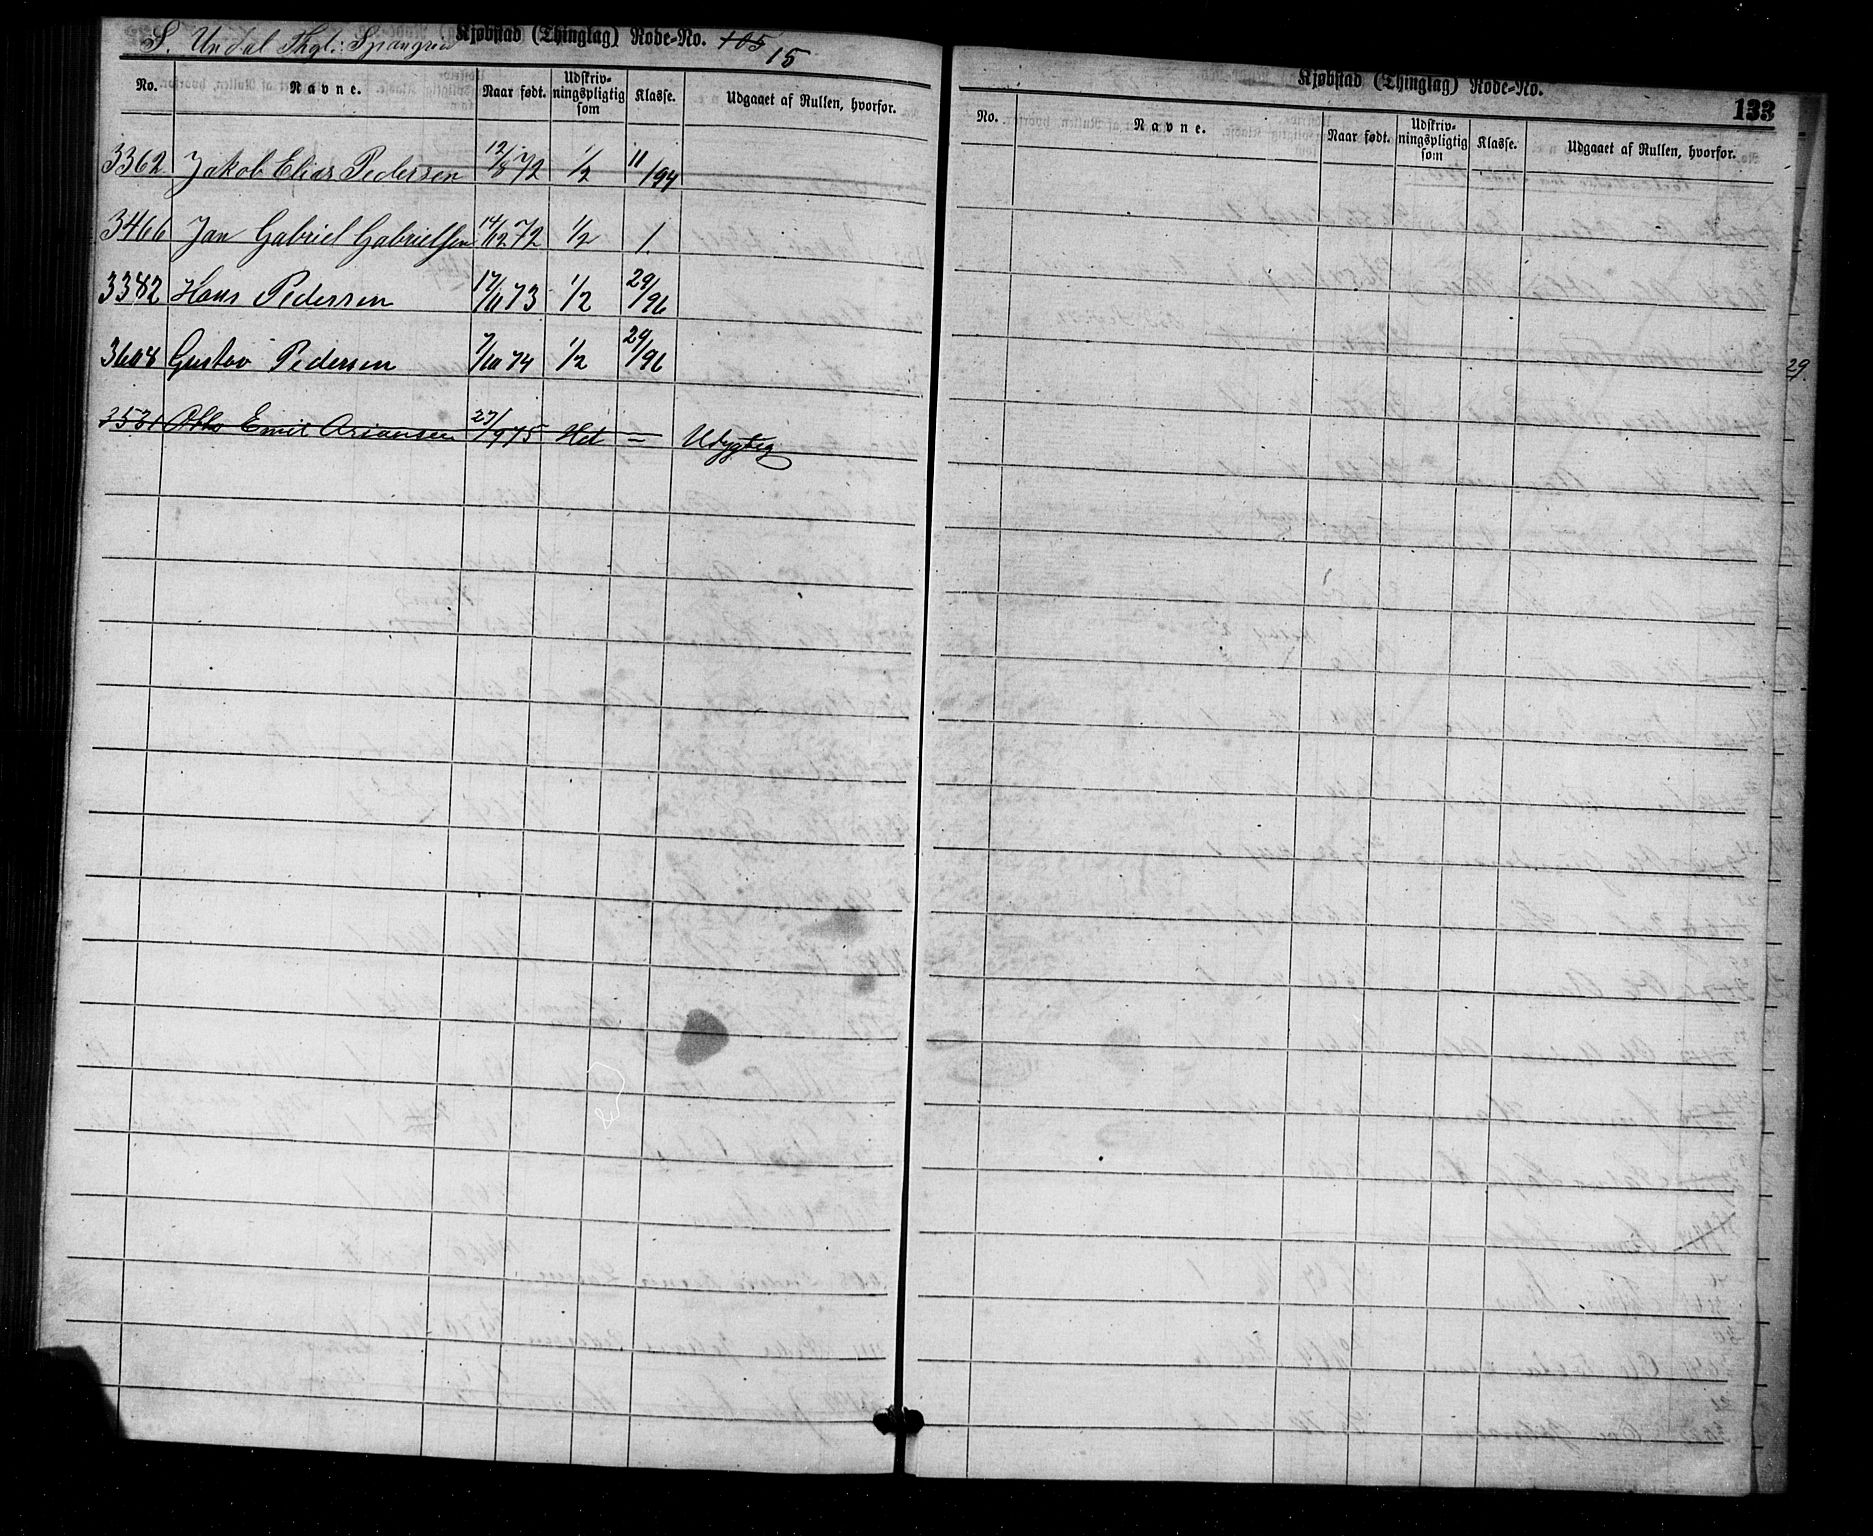 S. Undal Thgl: Spangrid Kjøbstad (Thinglag) Rode-No. 105 15
No. Navne. Naar født. Udskriv-ningspligtig som Klasse. Udgaaet af Rullen, hvorfor.
3362 Jakob Elias Pedersen 12/8 72 1/2 11/94
3466 Jan Gabriel Gabrielsen 14/12 72 1/2 1.
3382 Hans Pedersen 17/11 73 1/2 29/96
3608 Gustav Pedersen 7/10 74 1/2 29/96
3531 Otto Emil Ariansen 27/9 75 Hel — Udygtig
Kjøbstad (Thinglag) Rode-No.
133
No. Navne. Naar født. Udskriv-ningspligtig som Klasse. Udgaaet af Rullen, hvorfor.
29.